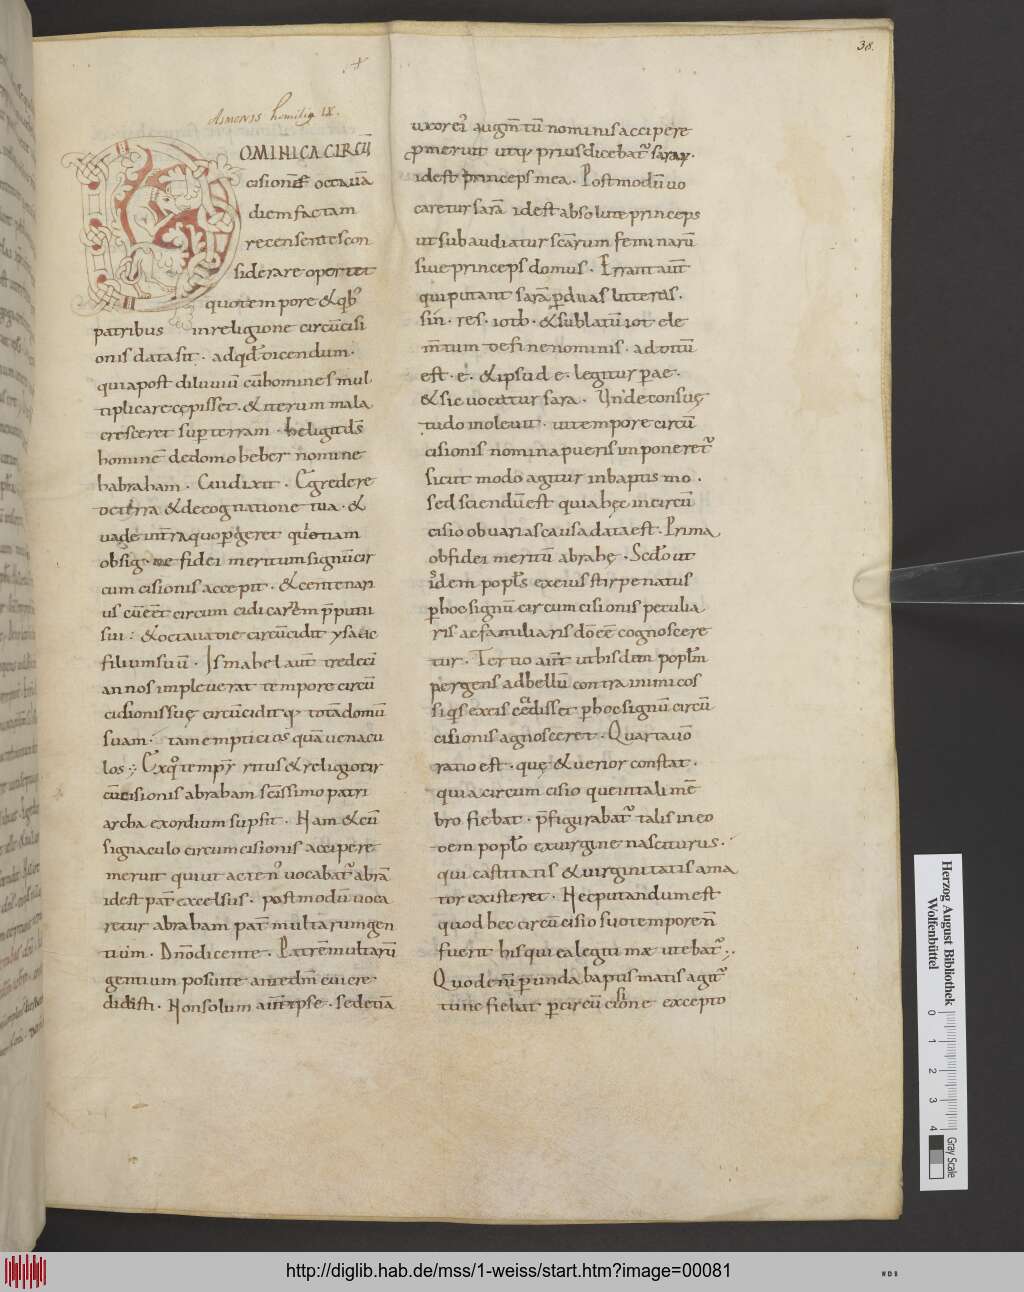 38.
Aimonis homilia IX.
DOMINICA CIRCŪ
cisionē octauā
diem factam
recensentes con
siderare oportet
quo tempore & qb'
patribus in religione circūcisi
onis data sit . ad qđ dicendum .
quia post diluuiū cū homines mul
tiplicare cępisset . & iterum mala
cresceret sup terram . heligit ds̄
hominē de domo heber nomine
habraham . Cui dixit . Egredere
de terra & de cognatione tua . &
uade in t̄ra quo pgeret
fidei meritum signū cir
cumcisionis accepit . & centenari
us cū eēt circumcidi carnem p̄putii
sui : & octaua die circūcidit ysaac
filium suū . Ismahel aut̄ tredeci
annos impleuerat tempore circū
cisionis suę circūcidit q; totā domū
suam . tam empticios quā uernacu
los ; Ex q° tempr̄ ritus & religio cir
cūcisionis abraham sc̄issimo patri
archa exordium supsit . Nam & cū
signaculo circumcisionis accipere
meruit qui ut actenꝰ uocabatr̄ abrā
id est pat̄ excelsus . postmodū uoca
retur abraham pat̄ multarum gen
tium . Dn̄o dicente . Patrē multarū
gentium posui te ante dm̄ cui cre
didisti . Non solum aut̄ ipse . sed etiā
uxor ei' augm̄tū nominis accipere
pmeruit ut q; prius dicebatr̄ saray .
id est princeps mea . Postmodū uo
caretur sarā id est absolute princeps
ut subaudiatur sc̄arum feminarū
siue princeps domus . Errant aut̄
qui putant sarā p duas litteras .
sin . res . iotb . & sublatū iot ele
m̄tum de fine nominis . additū
est . e . & ipsud e . legitur p ae .
& sic uocatur sara . Unde consuę
tudo inoleuit . ut tempore circū
cisionis nomina pueris imponeretr̄
sicut modo agitur in baptismo .
Sed sciendū est quia hęc in circū
cisio ob uarias causa data est . Prima
ob fidei meritū abrahę . Scdo ut
idem popls̄ ex eius stirpe natus
p hoc signū circumcisionis peculia
ris ac familiaris dō eē cognoscere
tur . Tertio aūt ut hisdem poplm̄
pergens ad bellū contra inimicos
si q's ex eis cecidisset p hoc signū circū
cisionis agnosceret . Quarta uō
ratio est . quę & uerior constat .
quia circumcisio que in tali mē
bro fiebat . p̄figurabatr̄ talis in eo
dem poplo ex uirgine nasciturus .
qui castitatis & uirginitatis ama
tor existeret . Nec putandum est
quod hec circūcisio suo temporeñ
fuerit his qui ea legitimæ utebatr̄ ;
Quod enī p unda baptismatis agitr̄
tunc fiebat p circūcisione excepto
Herzog August Bibliothek
Wolfenbüttel
0 1 2 3 4
Gray Scale
http://diglib.hab.de/mss/1-weiss/start.htm?image=00081